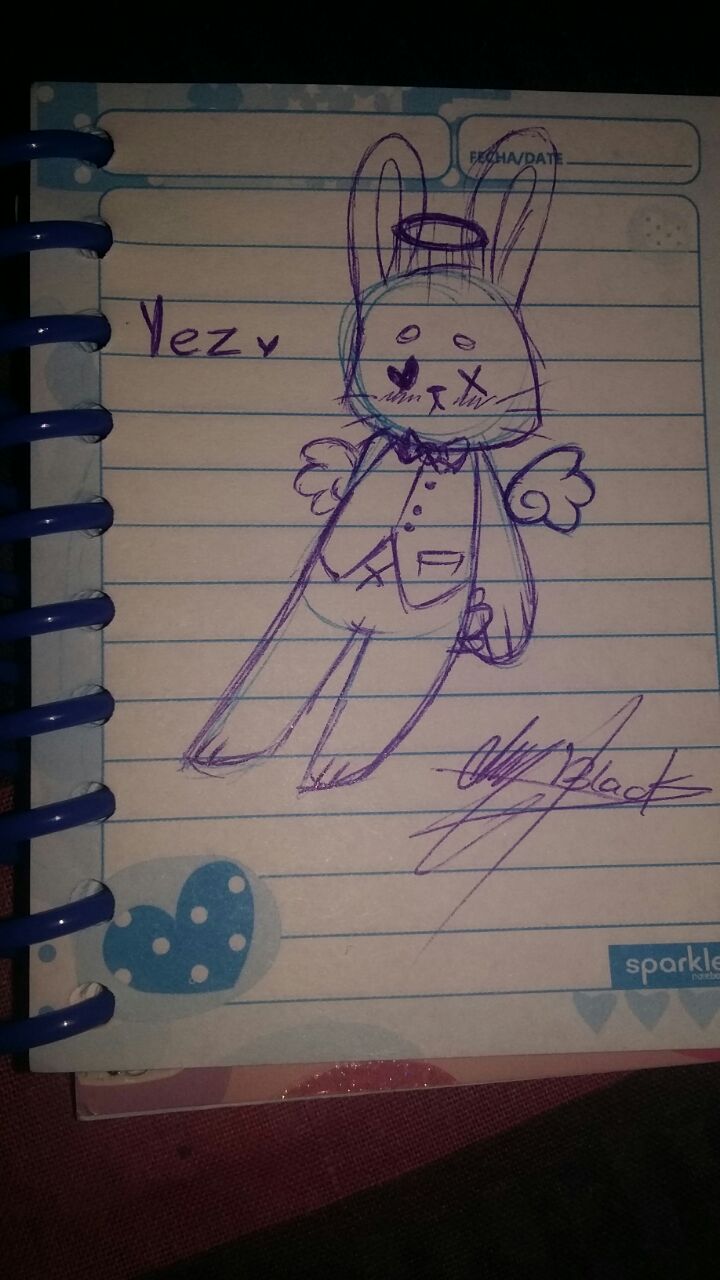 FECHA/DATE
Yez
Black
sparkle